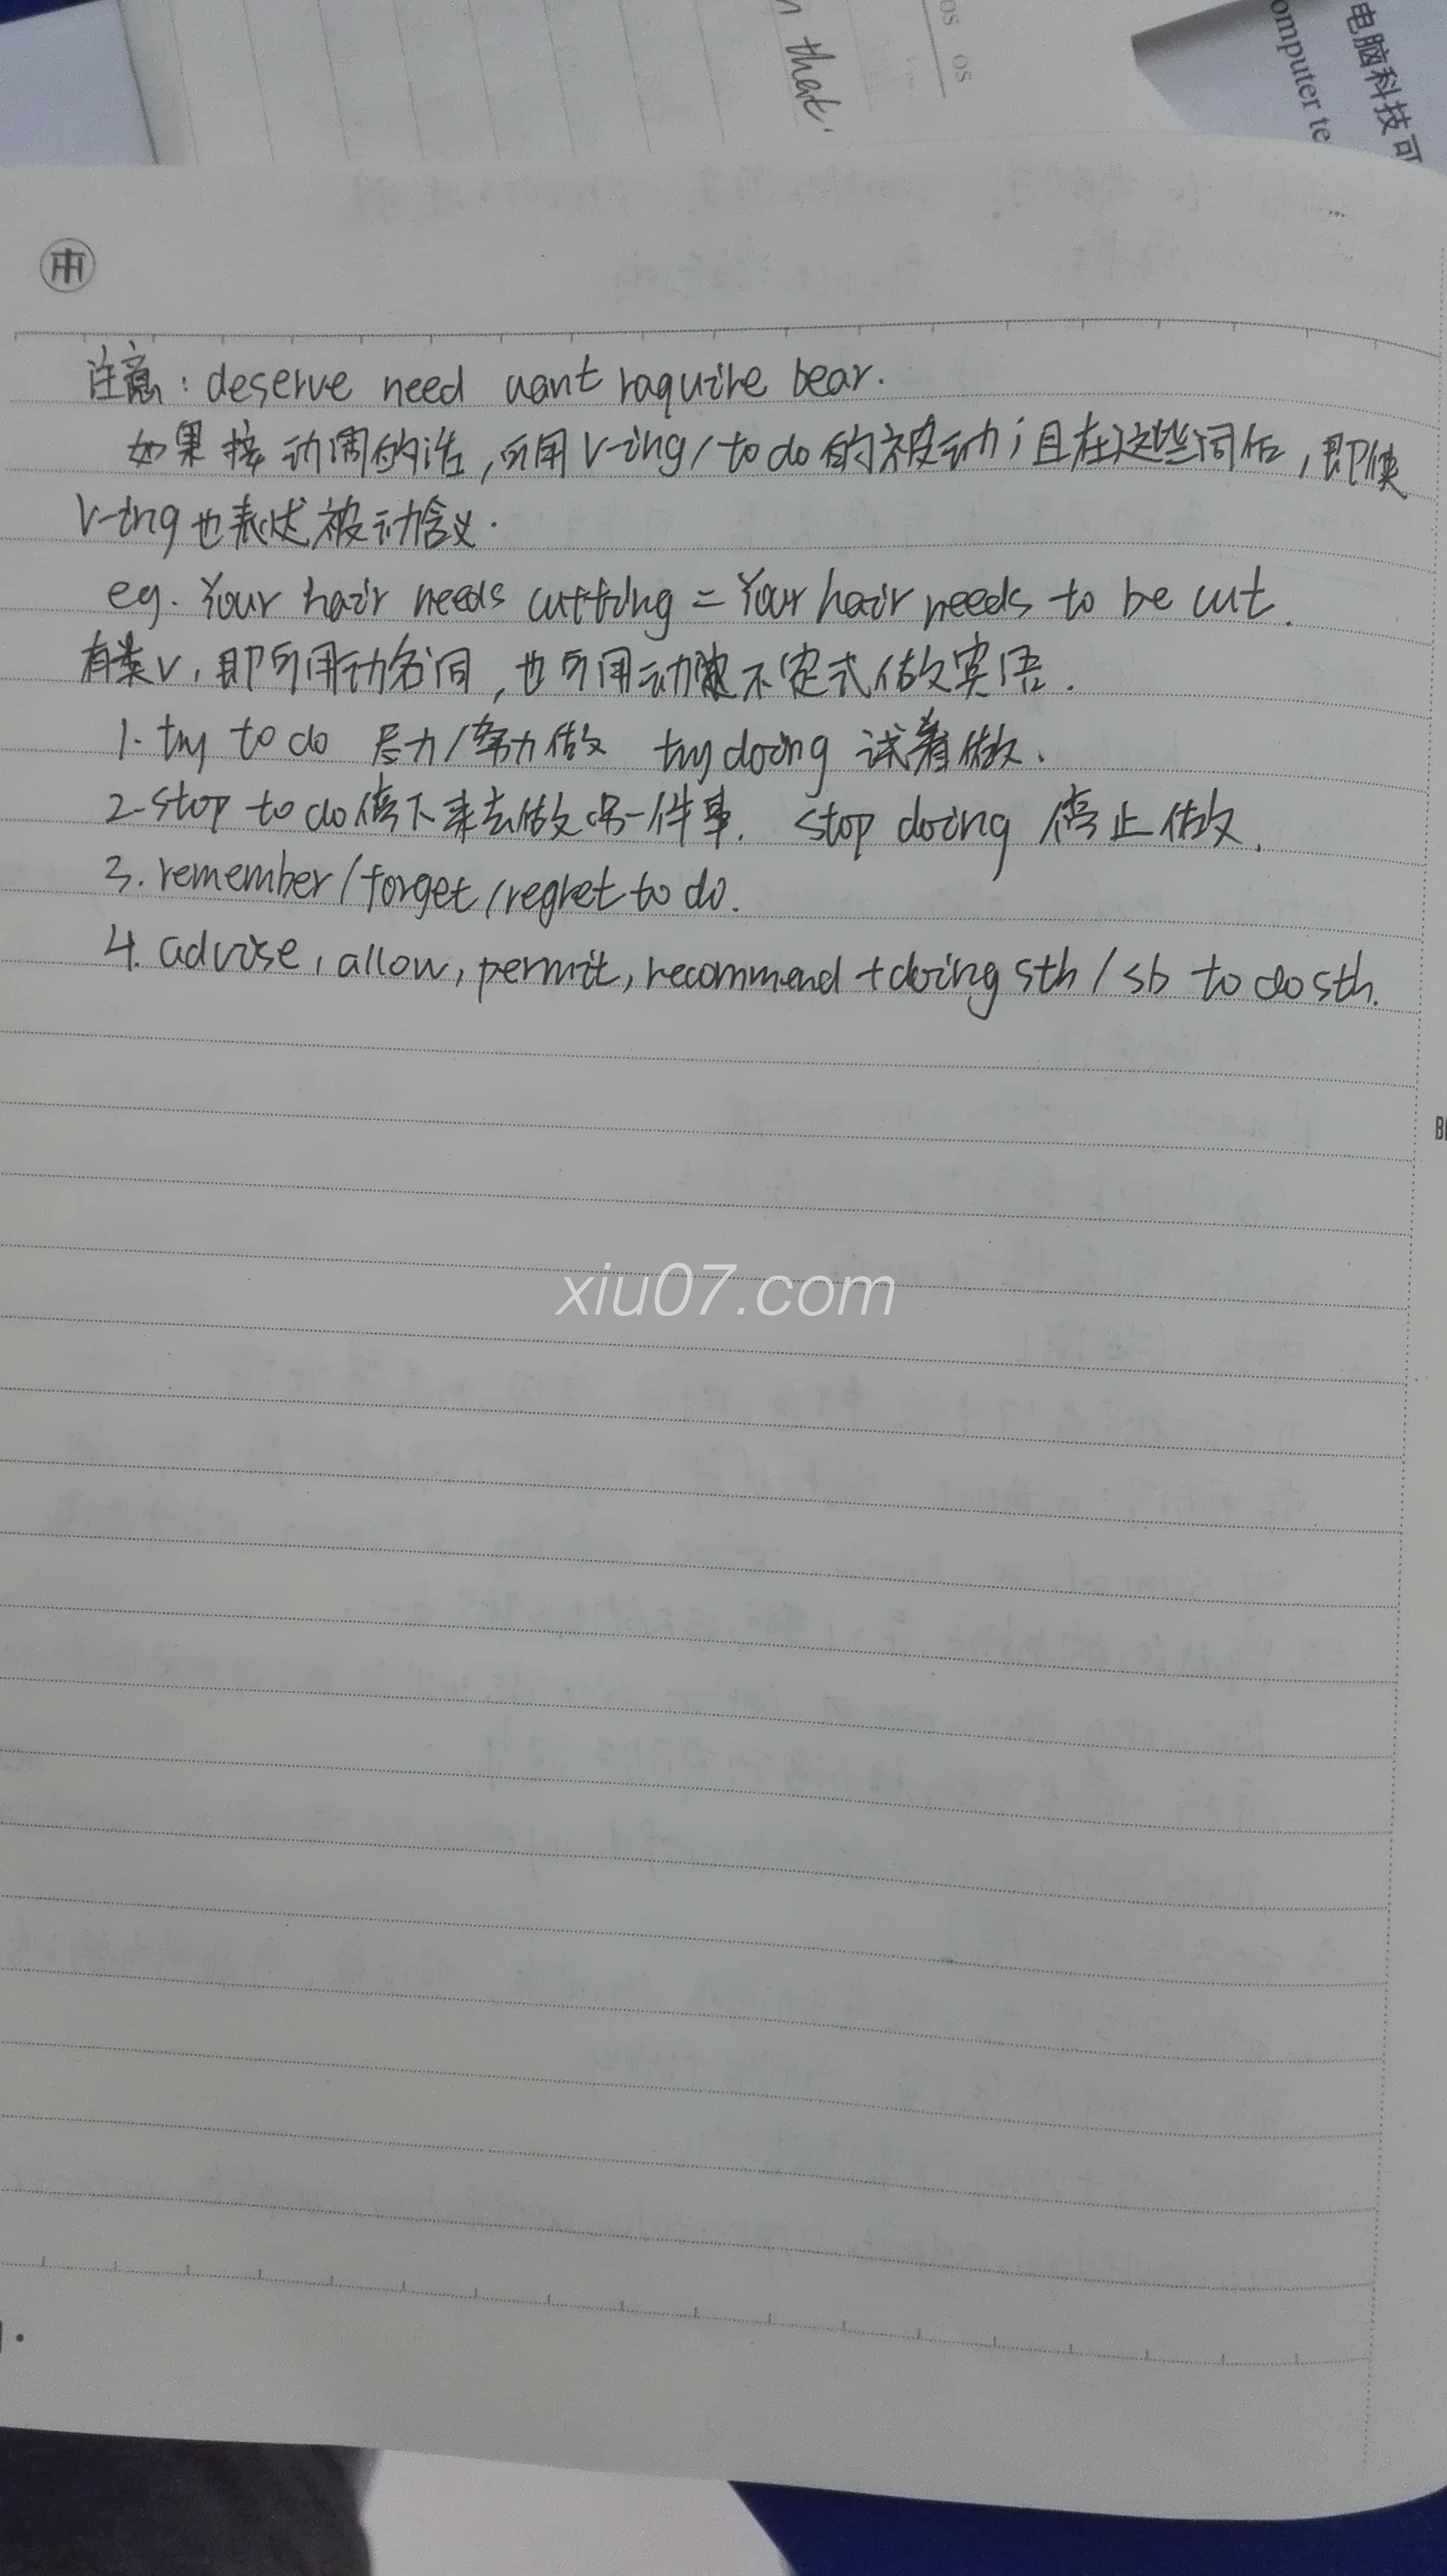 that.
os os
电脑科技可
omputer te
注意: deserve need want raquire bear.
如果接动词的话,可用V-ing/to do的被动;且在这些词后,即使
V-ing也表达被动含义.
eg. Your hair needs cutting = Your hair needs to be cut.
有类V,即可用动名词,也可用动不定式做宾语.
1. try to do 尽力/努力做 try doing 试着做.
2. stop to do停下来去做另一件事. stop doing 停止做.
3. remember/forget/regret to do.
4. advise, allow, permit, recommend +doing sth / sb to do sth.
xiu07.com